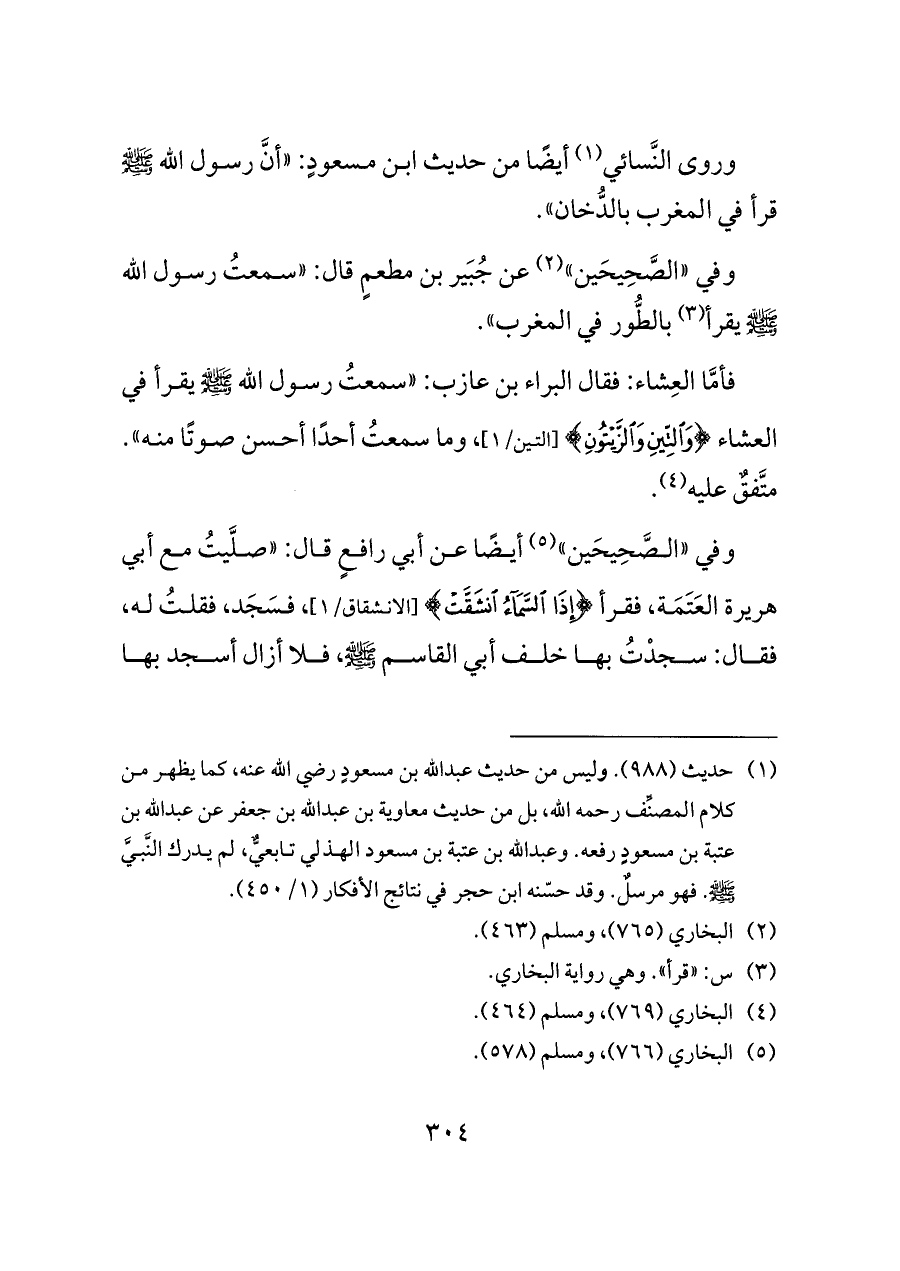 وروى النَّسائي(١) أيضًا من حديث ابن مسعودٍ: «أنَّ رسول الله ﷺ
قرأ في المغرب بالدُّخان».
وفي «الصَّحِيحَين»(٢) عن جُبَير بن مطعمٍ قال: «سمعتُ رسول الله
ﷺ يقرأ(٣) بالطُّور في المغرب».
فأمَّا العِشاء: فقال البراء بن عازب: «سمعتُ رسول الله ﷺ يقرأ في
العشاء ﴿وَٱلتِّينِ وَٱلزَّيْتُونِ﴾ [التين/ ١]، وما سمعتُ أحدًا أحسن صوتًا منه».
متَّفقٌ عليه(٤).
وفي «الصَّحِيحَين»(٥) أيضًا عن أبي رافعٍ قال: «صلَّيتُ مع أبي
هريرة العَتَمَة، فقرأ ﴿إِذَا ٱلسَّمَآءُ ٱنشَقَّتْ﴾ [الانشقاق/ ١]، فسَجَد، فقلتُ له،
فقال: سجدْتُ بها خلف أبي القاسم ﷺ، فلا أزال أسجد بها
(١) حديث (٩٨٨). وليس من حديث عبدالله بن مسعودٍ رضي الله عنه، كما يظهر من
كلام المصنِّف رحمه الله، بل من حديث معاوية بن عبدالله بن جعفر عن عبدالله بن
عتبة بن مسعودٍ رفعه. وعبدالله بن عتبة بن مسعود الهذلي تابعيٌّ، لم يدرك النَّبيَّ
ﷺ. فهو مرسلٌ. وقد حسّنه ابن حجر في نتائج الأفكار (١/ ٤٥٠).
(٢) البخاري (٧٦٥)، ومسلم (٤٦٣).
(٣) س: «قرأ». وهي رواية البخاري.
(٤) البخاري (٧٦٩)، ومسلم (٤٦٤).
(٥) البخاري (٧٦٦)، ومسلم (٥٧٨).
٣٠٤